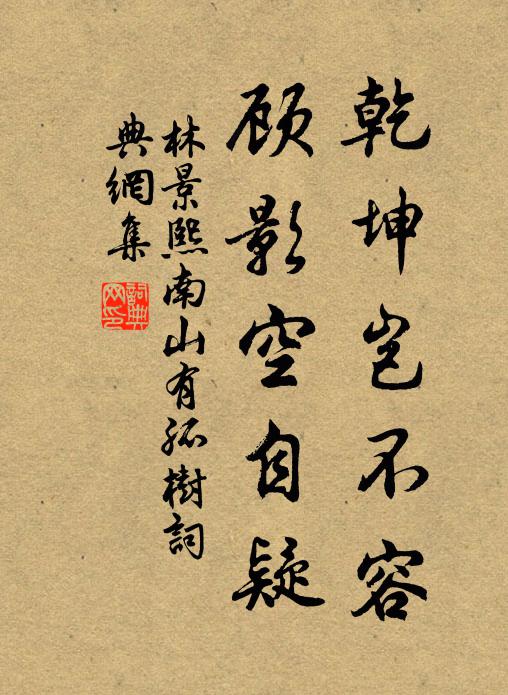 乾坤岂不容
顾影空自疑
林景熙南山有孤樹詞
典網集
詞典网印